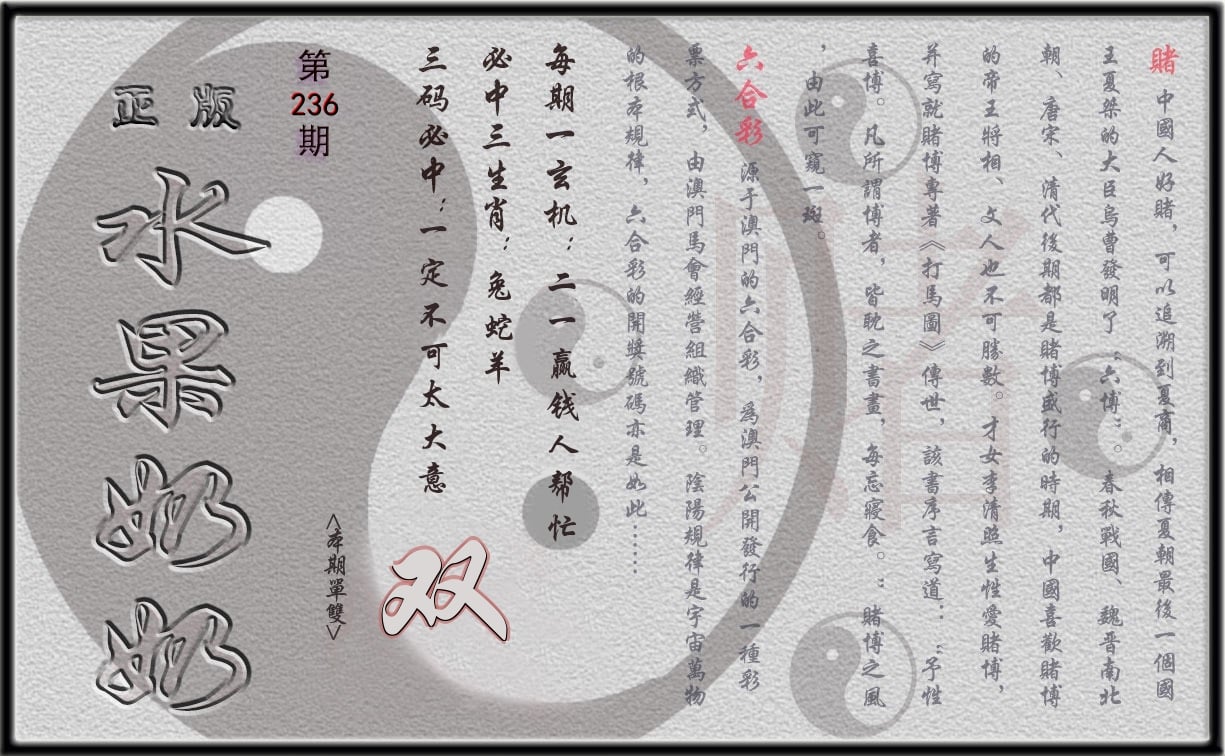 賭 中國人好賭，可以追溯到夏商，相傳夏朝最後一個國
王夏桀的大臣烏曹發明了“六博”。春秋戰國、魏晋南北
朝、唐宋、清代後期都是賭博盛行的時期，中國喜歡賭博
的帝王將相、文人也不可勝數。才女李清照生性愛賭博，
并寫就賭博專著《打馬圖》傳世，該書序言寫道：“予性
喜博。凡所謂博者，皆耽之書畫，每忘寢食。”賭博之風
，由此可窺一斑。
六合彩 源于澳門的六合彩，爲澳門公開發行的一種彩
票方式，由澳門馬會經營組織管理。陰陽規律是宇宙萬物
的根本規律，六合彩的開獎號碼亦是如此……
每期一玄机：二一赢钱人帮忙
必中三生肖：兔蛇羊
三码必中：一定不可太大意
双
第
236
期
<本期單雙>
正版
水果奶奶
賭